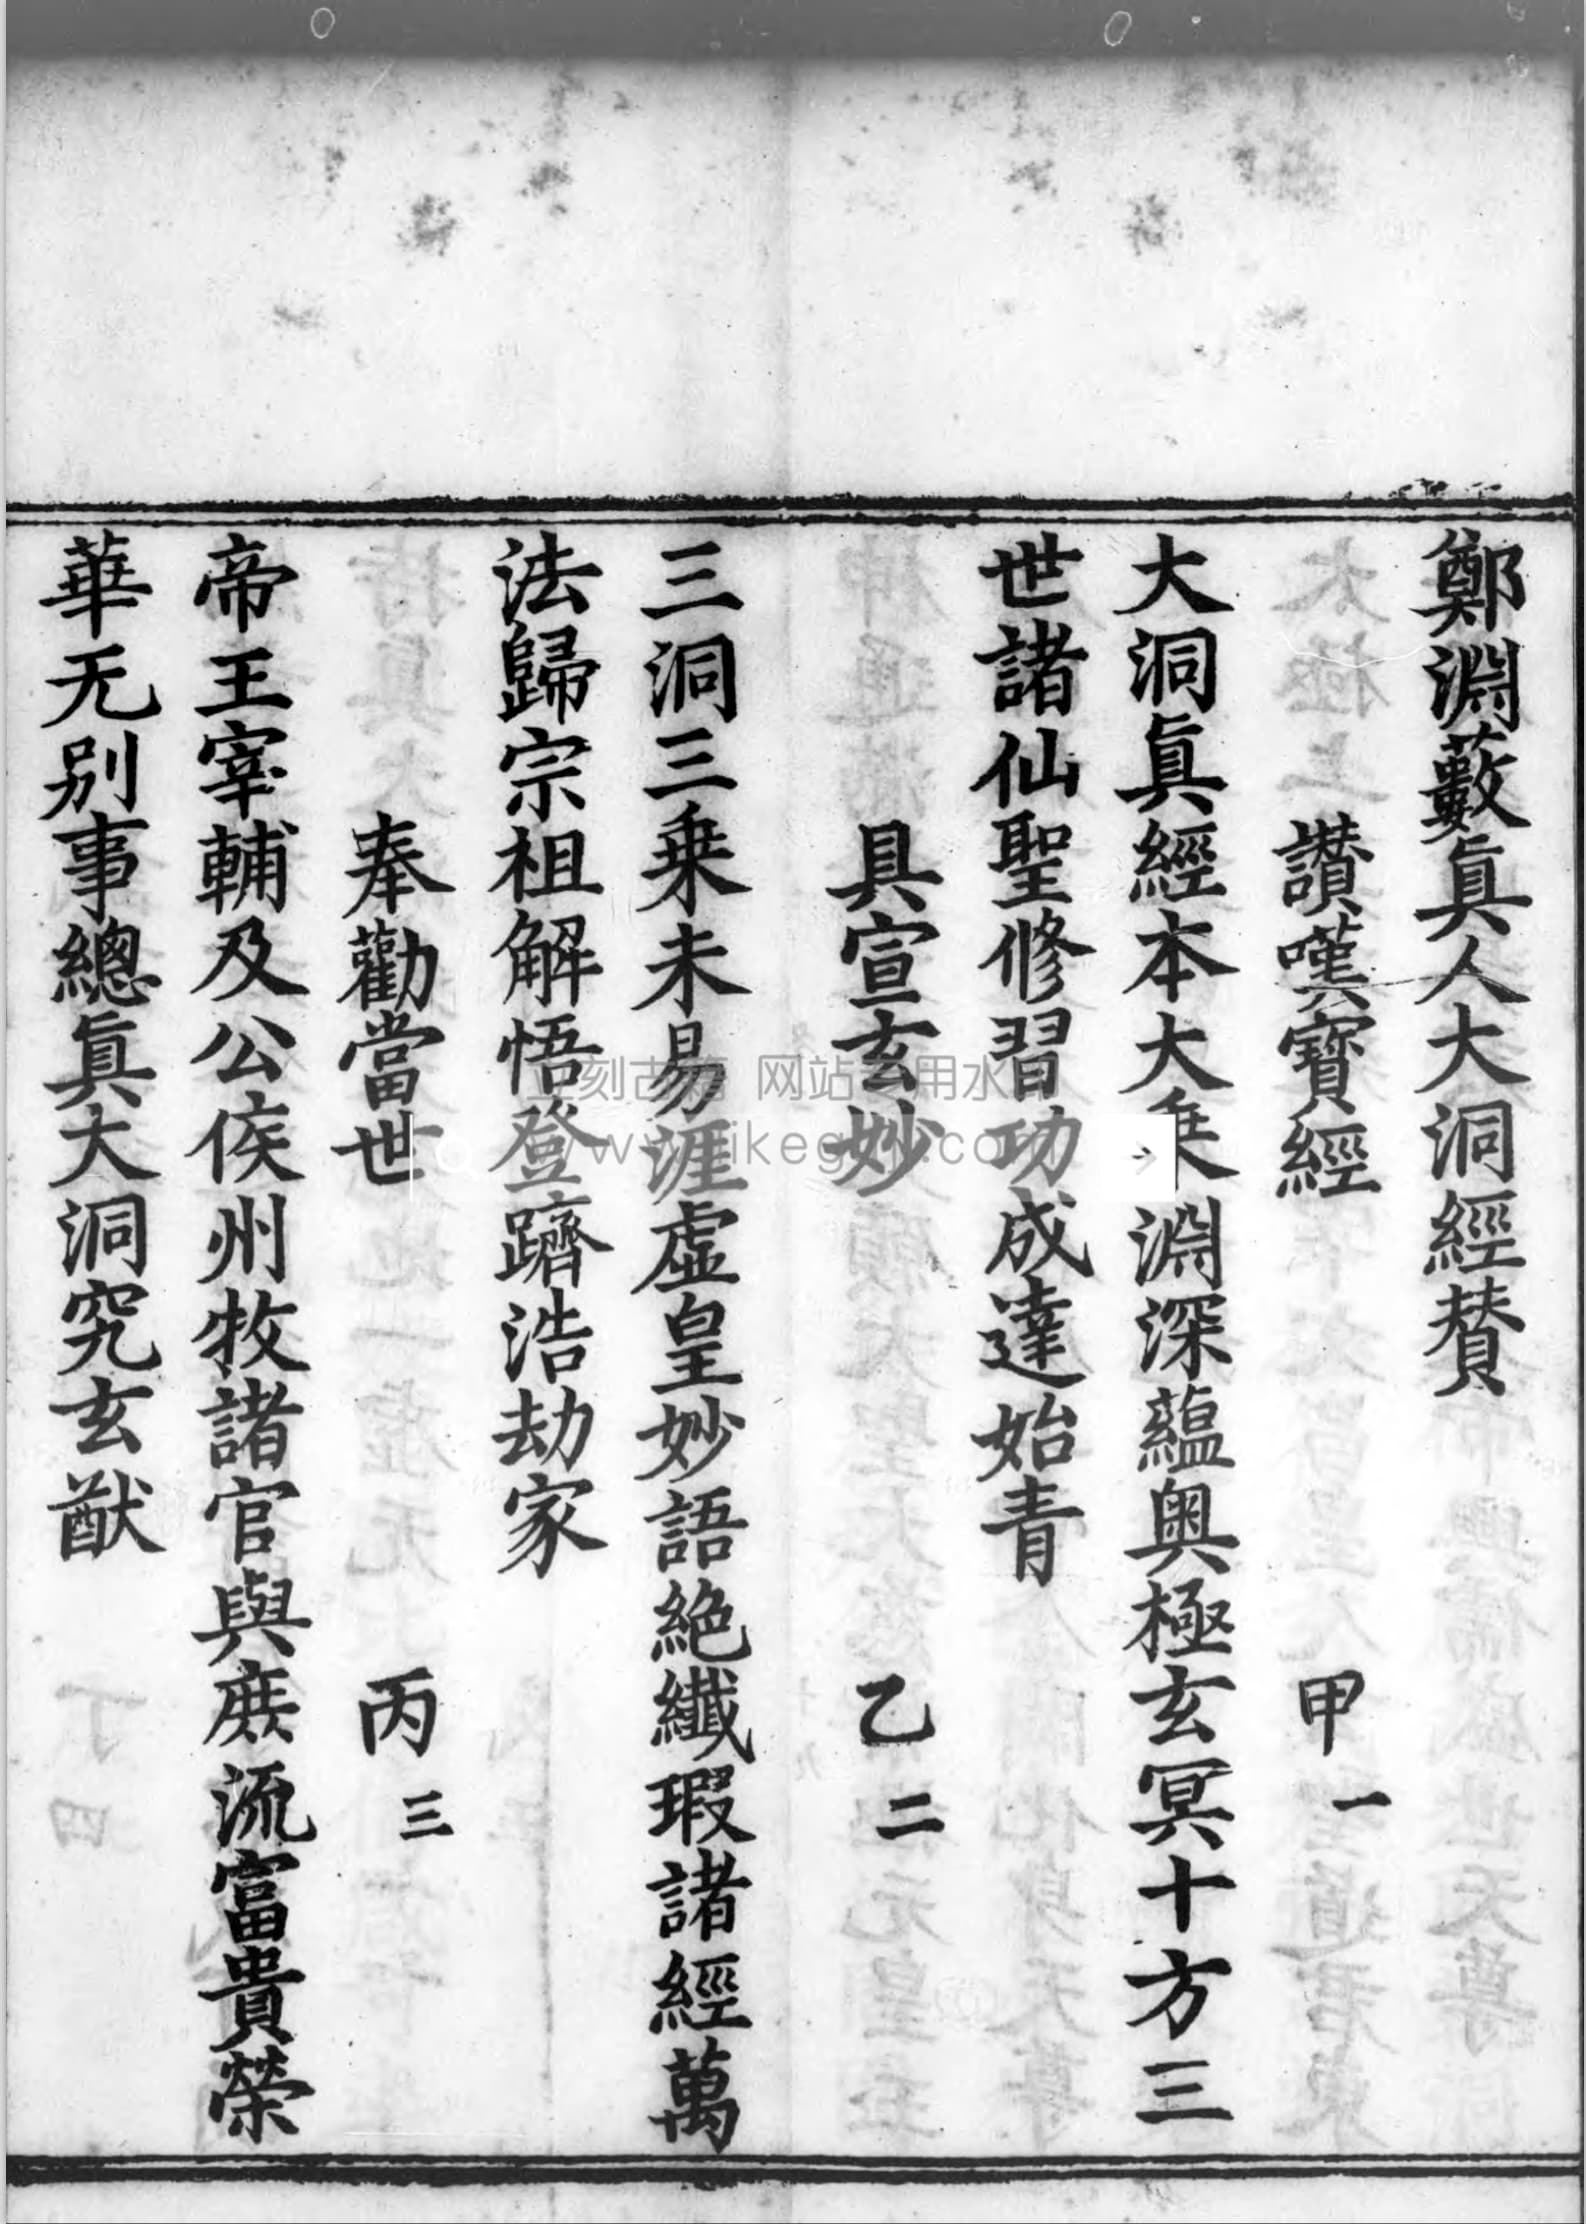 鄭淵藪眞人大洞經賛
讃嘆寶經 甲一
大洞眞經本大乗淵深蘊奥極玄冥十方三
世諸仙聖修習功成達始青
具宣玄妙 乙二
三洞三乗未易涯虚皇妙語絶纎瑕諸經萬
法歸宗祖解悟登躋浩劫家
奉勸當世 丙三
帝王宰輔及公侯州牧諸官與庶流富貴榮
華无别事總眞大洞究玄猷
立刻古籍 网站专用水